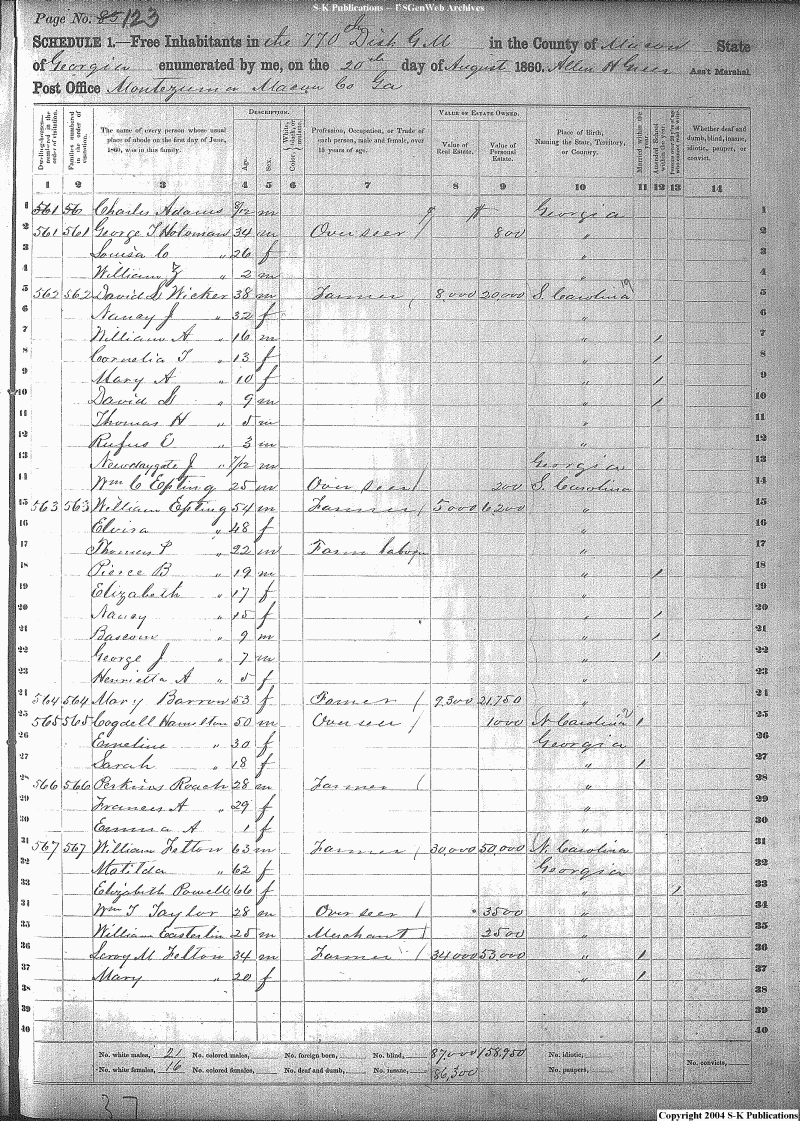 S-K Publications – USGenWeb Archives
Page No. 85 123
SCHEDULE 1.—Free Inhabitants in the 770th Dist G M in the County of Macon State
of Georgia enumerated by me, on the 20th day of August 1860. Allen H Greer Ass't Marshal.
Post Office Montezuma Macon Co Ga
Dwelling-houses—numbered in the order of visitation.
Families numbered in the order of visitation.
The name of every person whose usual place of abode on the first day of June, 1860, was in this family.
DESCRIPTION.
Age.
Sex.
Color, White, black, or mulatto.
Profession, Occupation, or Trade of each person, male and female, over 15 years of age.
VALUE OF ESTATE OWNED.
Value of Real Estate.
Value of Personal Estate.
Place of Birth, Naming the State, Territory, or Country.
Married within the year.
Attended School within the year.
Whether deaf and dumb, blind, insane, idiotic, pauper, or convict.
1 2 3 4 5 6 7 8 9 10 11 12 13 14
1 561 561 Charles Adams 9/12 m Georgia 1
2 561 561 George T Holoman 34 m Overseer 800 " 2
3 Louisa C " 26 f " 3
4 William Z " 2 m " 4
5 562 562 David S Wicker 38 m Farmer 8,000 20,000 S. Carolina 19 5
6 Nancy J " 32 f " 6
7 William A " 16 m " / 7
8 Cornelia T " 13 f " / 8
9 Mary A " 10 f " / 9
10 David S " 9 m " / 10
11 Thomas H " 5 m " 11
12 Rufus E " 3 m " 12
13 J " 7/12 m Georgia 13
14 Wm C Epting 25 m Overseer 200 S. Carolina 14
15 563 563 William Epting 54 m Farmer 5000 6,200 " 15
16 Elvira " 48 f " 16
17 Thomas P " 22 m Farm laborer " 17
18 Pierce B " 19 m " / 18
19 Elizabeth " 17 f " 19
20 Nancy " 15 f " / 20
21 Bascom " 9 m " / 21
22 George J " 7 m " / 22
23 Henrietta A " 5 f " 23
24 564 564 Mary Barron 53 f Farmer 9,300 21,750 " 24
25 565 565 Cogdell Hamilton 50 m Overseer 1000 N Carolina / 25
26 Emeline " 30 f Georgia 26
27 Sarah " 18 f " / 27
28 566 566 Perkins Roach 28 m Farmer " 28
29 Frances A " 29 f " 29
30 Emma A " 1 f " 30
31 567 567 William Felton 63 m Farmer 30,000 50,000 N. Carolina 31
32 Matilda " 62 f Georgia 32
33 Elizabeth Powell 66 f " / 33
34 Wm T Taylor 28 m Overseer 3500 " 34
35 William Easterlin 25 m Merchant 3500 " 35
36 Leroy M Felton 34 m Farmer 34000 53,000 " / 36
37 Mary " 20 f " / 37
38 38
39 39
40 40
No. white males, 21 No. colored males, No. foreign born, No. blind, 87,000 158,950 No. idiotic,
No. white females, 16 No. colored females, No. deaf and dumb, No. insane, 86,300 No. paupers, No. convicts,
37
Copyright 2004 S-K Publications